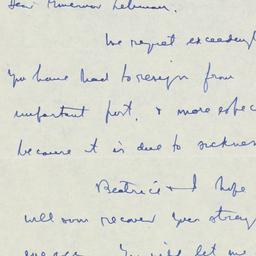 Dear Governor Lehman,
We regret exceedingl
you have had to resign from
important post, & more espec
because it is due to sickness
Beatrice & I hope
will soon recover your streng
You will let me